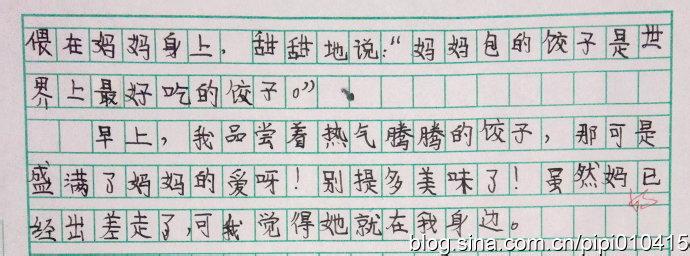 偎在妈妈身上，甜甜地说：“妈妈包的饺子是世
界上最好吃的饺子。”
早上，我品尝着热气腾腾的饺子，那可是
盛满了妈妈的爱呀！别提多美味了！虽然妈已
经出差走了，可我觉得她就在我身边。
blog.sina.com.cn/pipi010415